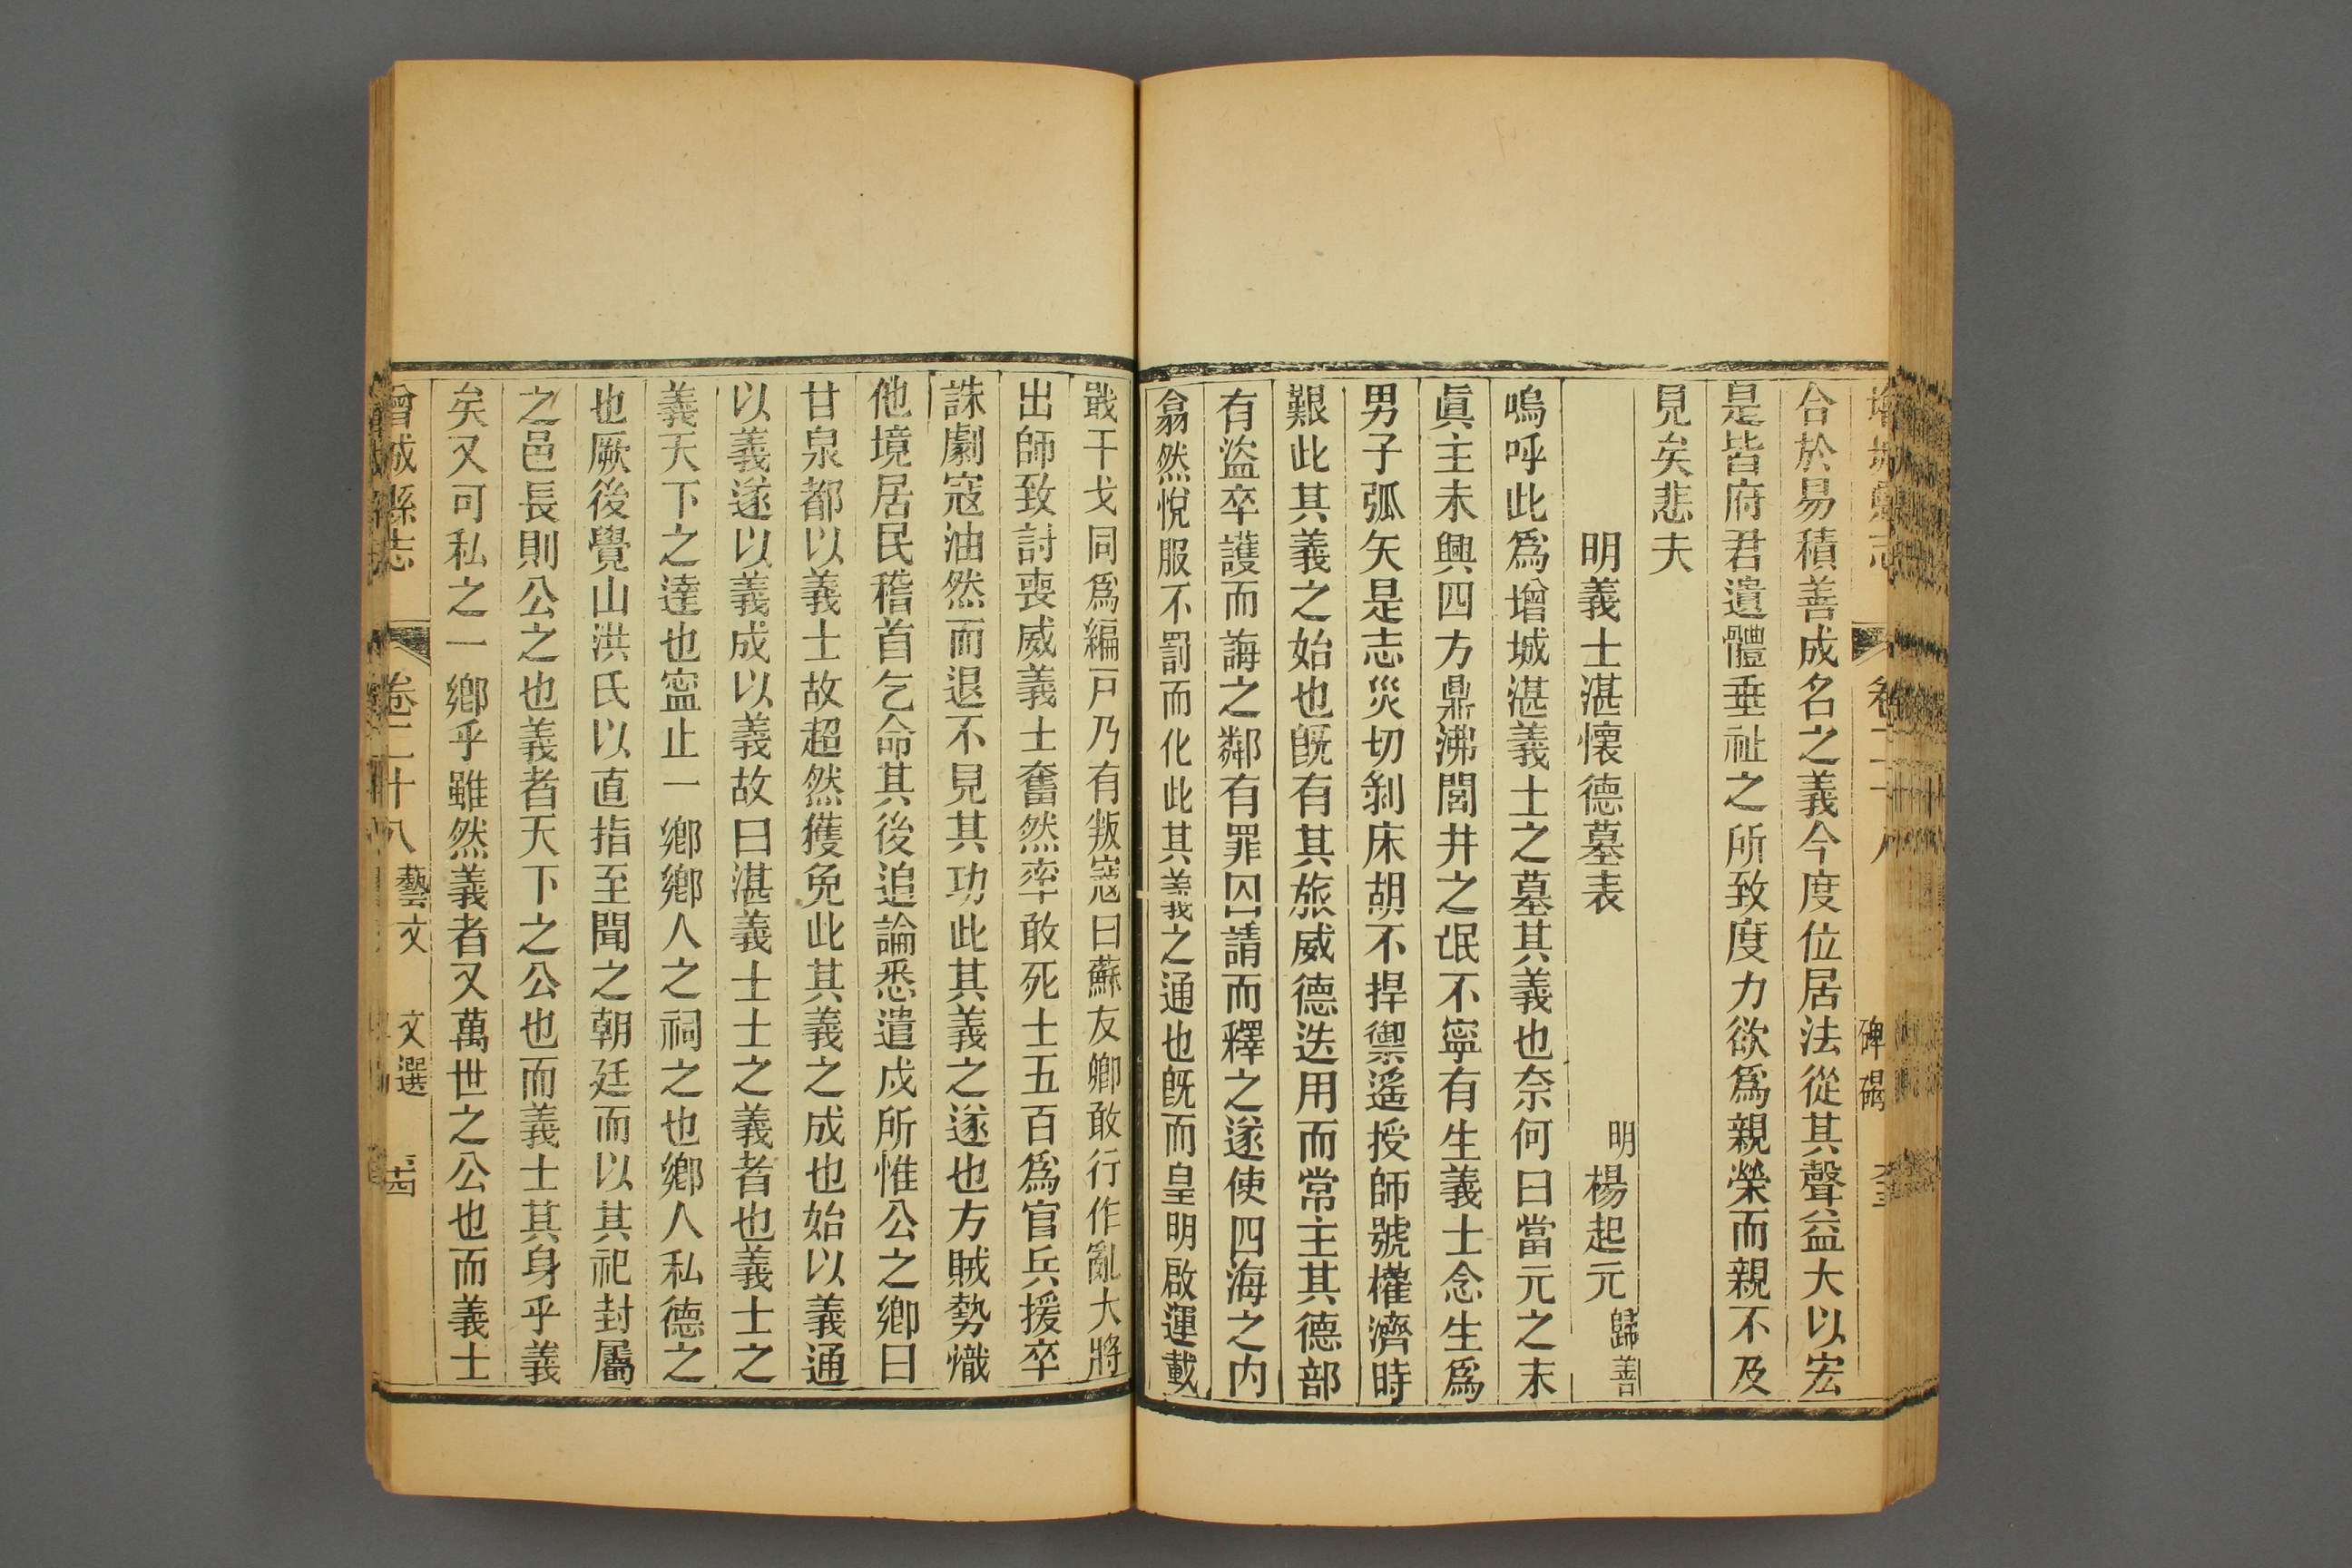 增城縣志 卷二十八 碑碣
合於易積善成名之義今度位居法從其聲益大以宏
是皆府君遺體垂祉之所致度力欲爲親榮而親不及
見矣悲夫
明義士湛懷德墓表 明楊起元歸善
嗚呼此爲增城湛義士之墓其義也奈何曰當元之末
眞主未興四方鼎沸閭井之氓不寧有生義士念生爲
男子弧矢是志災切剝床胡不捍禦遙授師號權濟時
艱此其義之始也旣有其旅威德迭用而常主其德部
有盜卒護而誨之鄰有罪囚請而釋之遂使四海之内
翕然悅服不罰而化此其義之通也旣而皇明啟運載
戢干戈同爲編戸乃有叛寇曰蘇友卿敢行作亂大將
出師致討喪威義士奮然率敢死士五百爲官兵援卒
誅劇寇油然而退不見其功此其義之遂也方賊勢熾
他境居民稽首乞命其後追論悉遣戍所惟公之鄉曰
甘泉都以義士故超然獲免此其義之成也始以義通
以義遂以義成以義故曰湛義士士之義者也義士之
義天下之達也寍止一鄉鄉人之祠之也鄉人私德之
也厥後覺山洪氏以直指至聞之朝廷而以其祀封屬
之邑長則公之也義者天下之公也而義士其身乎義
矣又可私之一鄉乎雖然義者又萬世之公也而義士
曾城縣志 卷二十八 藝文 文選